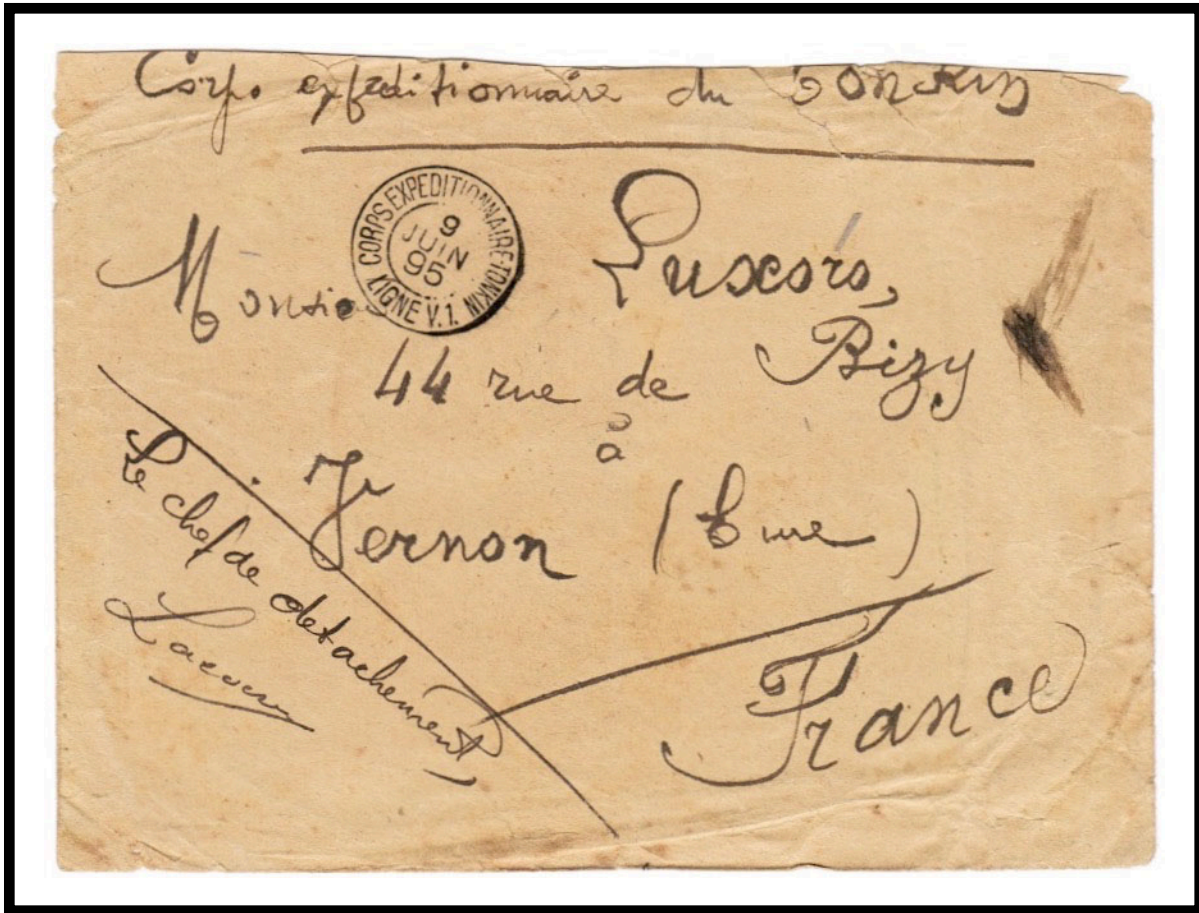 Corps expeditionnaire du TONKIN
CORPS EXPEDITIONNAIRE-TONKIN
9
JUIN
95
LIGNE V.1.
Monsieu
44 rue de Bizy
à
Vernon (Eure)
France
Le chef de detachement,